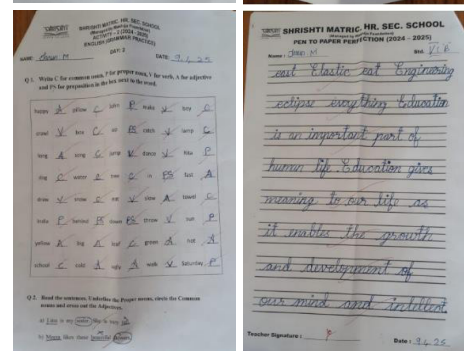 SHRISHTI MATRIC. HR. SEC. SCHOOL
ACTIVITY - 2 (2024 - 2025)
ENGLISH (GRAMMAR PRACTICE)
SET: 2
NAME: M DATE: 9.4.25
Q 1. Write C for common noun, P for proper noun, V for verb, A for adjective
and PS for preposition in the box next to the word.
happy A pillow C P make V boy C
crawl V box C PS catch V lamp C
long A song C jump V dance V P
dog C water tree C in PS fast A
draw V snow C eat V slow A towel C
India P behind PS down PS throw V P
yellow A big A leaf C green A A
school C cold A ugly A walk V Saturday P
Q 2. Read the sentences. Underline the Proper nouns, circle the Common
nouns and cross out the Adjectives.
a) is my She is very
b) likes those beautiful
SHRISHTI MATRIC. HR. SEC. SCHOOL
PEN TO PAPER PERFECTION (2024 – 2025)
Name : M Std. VI B
east Elastic eat Enginaring
eclipse everything Education
is an important part of
human life. Education gives
meaning to our life as
it enables the growth
and development of
our mind and intellect
Teacher Signature : Date : 9.4.25